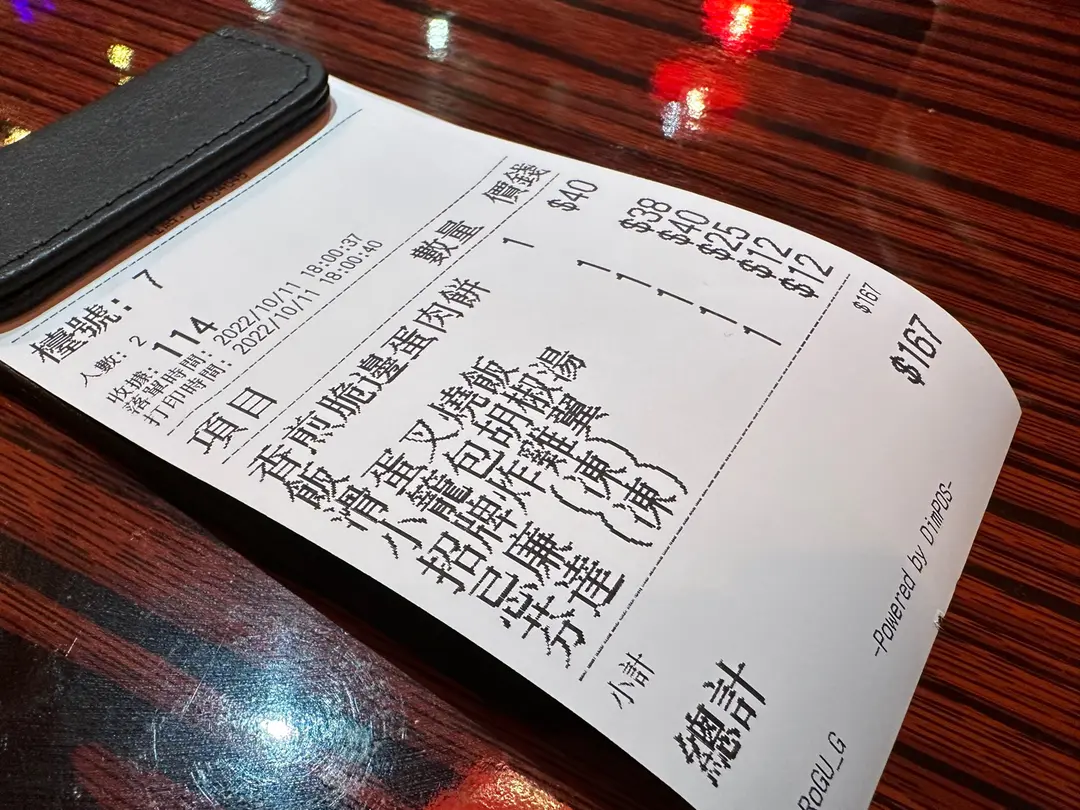 檯號: 7
人數: 2
收據: 114
落單時間: 2022/10/11 18:00:37
打印時間: 2022/10/11 18:00:40
項目 數量 價錢
香煎脆邊蛋肉餅 1 $40
飯
滑蛋叉燒飯 1 $38
小籠包胡椒湯 1 $40
招牌炸雞翼 1 $25
忌廉(凍) 1 $12
芬達(凍) 1 $12
小計 $167
總計 $167
-Powered by DimPOS-
RoGU_G